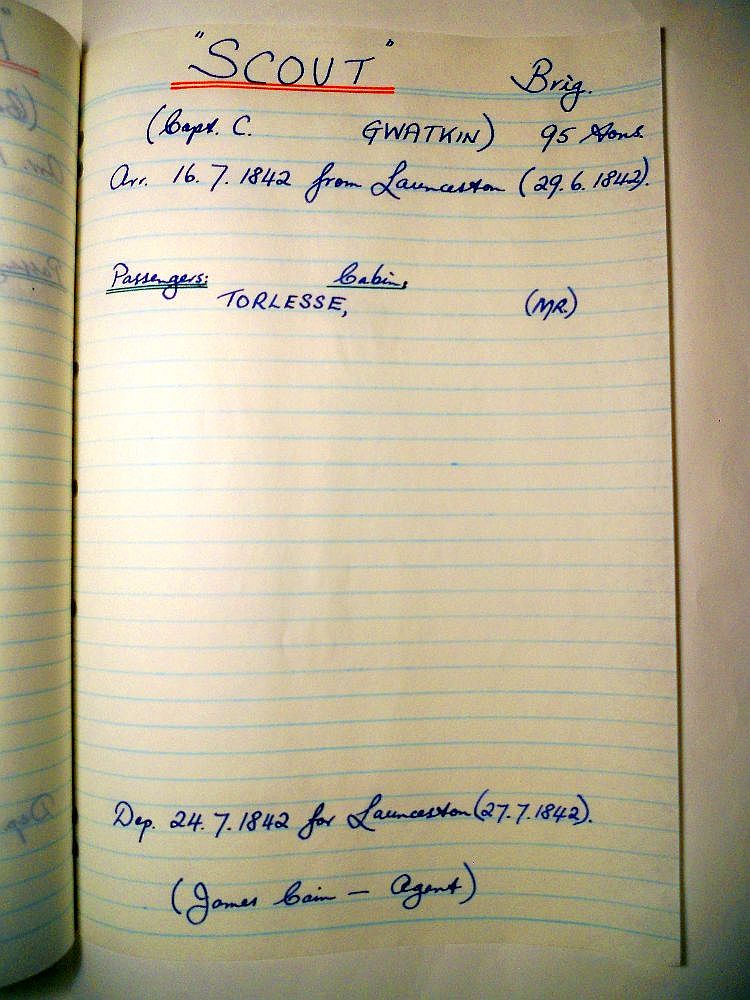 "SCOUT" Brig.
(Capt. C. GWATKIN) 95 tons.
Arr. 16.7.1842 from Launceston (29.6.1842).
Passengers: Cabin,
TORLESSE, (MR.)
Dep. 24.7.1842 for Launceston (27.7.1842).
(James Cain - Agent)